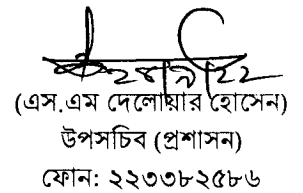 ২৪/৯/২২
(এস.এম দেলোয়ার হোসেন)
উপসচিব (প্রশাসন)
ফোন: ২২৩৩৮২৫৮৬